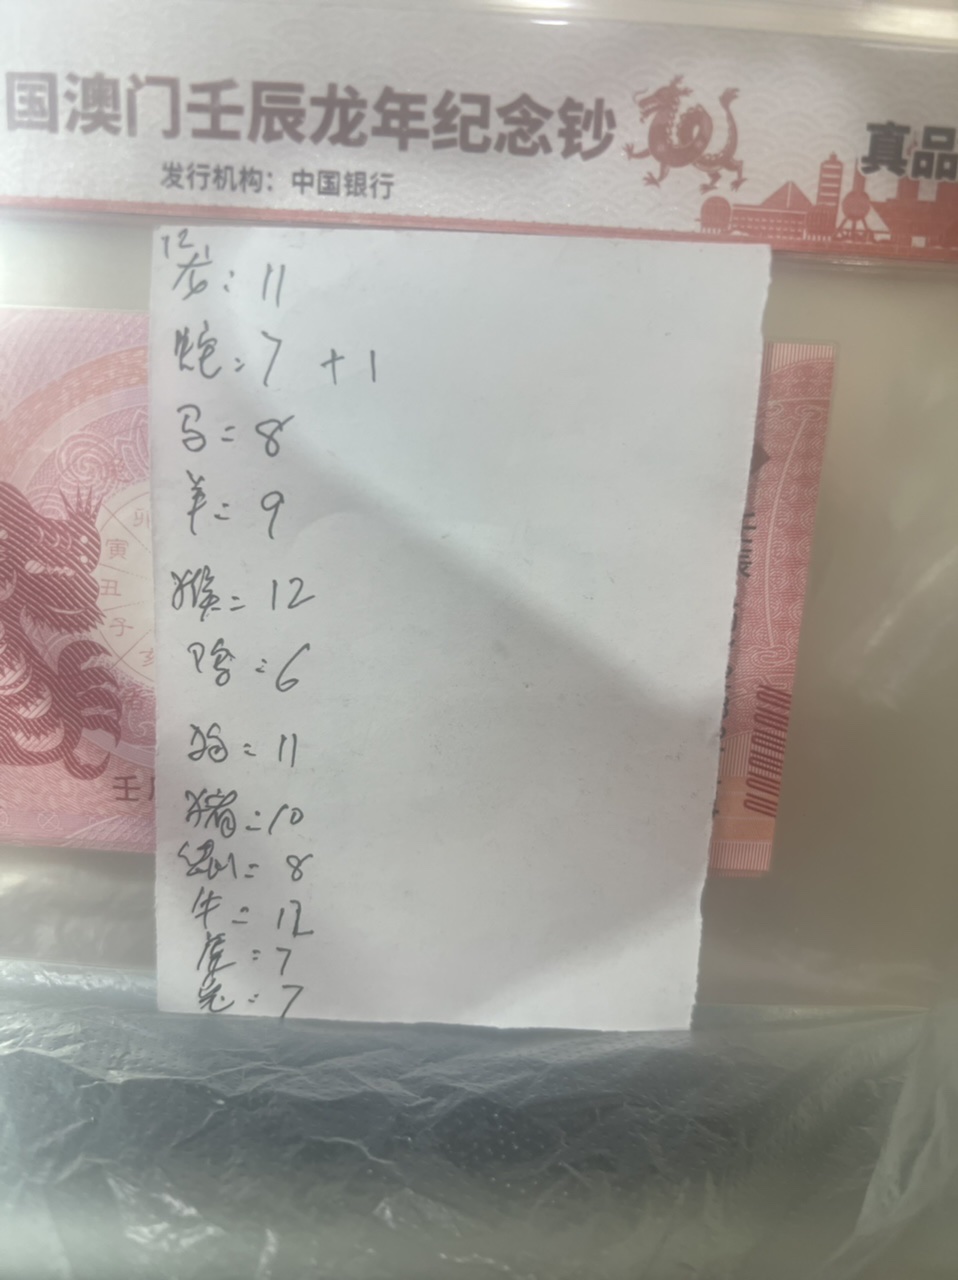 国澳门壬辰龙年纪念钞
真品
发行机构：中国银行
12
龙：11
蛇=7 +1
马=8
羊=9
猴=12
鸡=6
狗=11
猪=10
鼠=8
牛=12
虎=7
兔=7
卯
寅
丑
子
亥
壬
壬辰